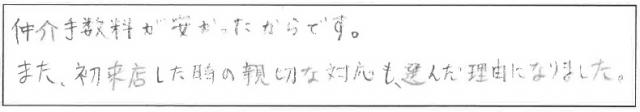 仲介手数料が安かったからです。
また、初来店した時の親切な対応も、選んだ理由になりました。